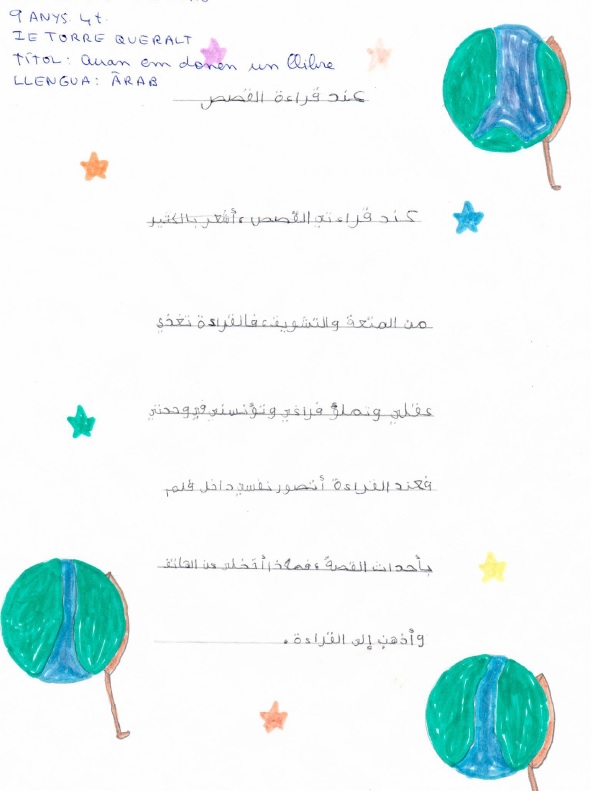 9 ANYS 4t.
IE TORRE QUERALT
TÍTOL: Quan em donen un llibre
LLENGUA: ÀRAB
عند قراءة القصص
عند قراءتي القصص، أشعر بالكثير
من المتعة والتشويق، فالقراءة تغذي
عقلي وتملؤ فراغي وتؤنسني في وحدتي
فعند القراءة أتصور نفسي داخل فلم
بأحداث القصة، فماذا أتخلى عن الهاتف
وأذهب إلى القراءة.